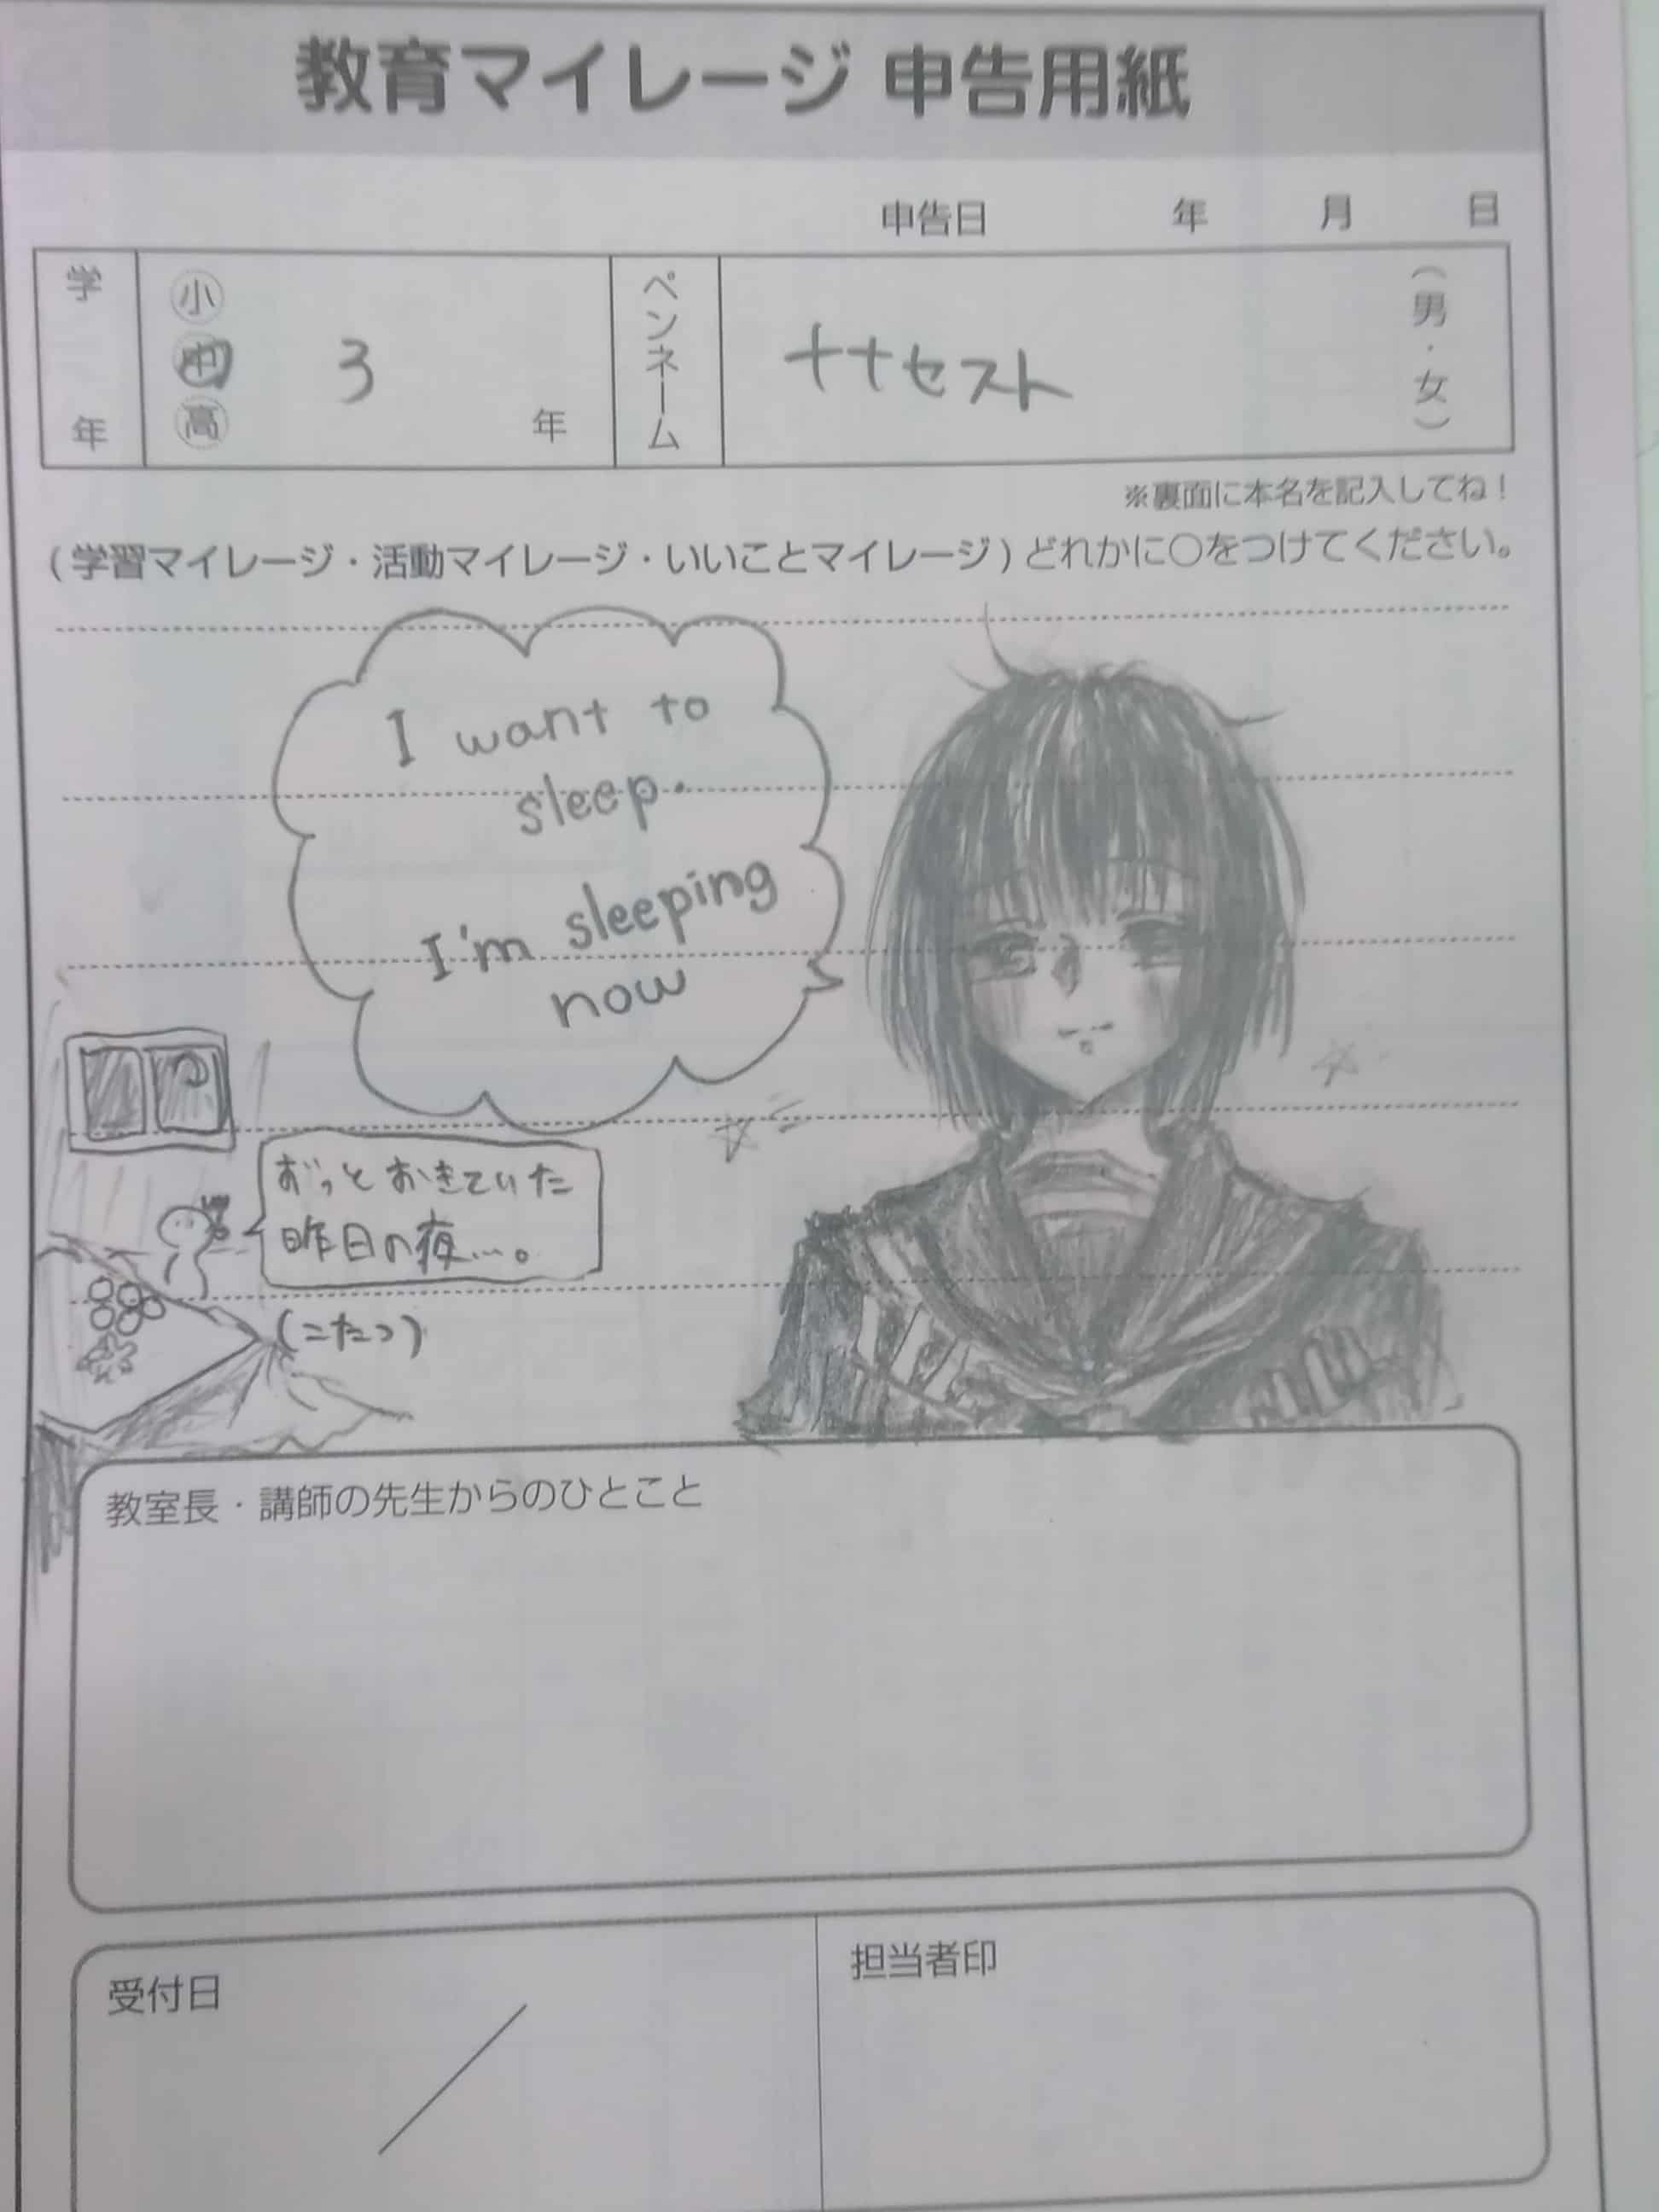 教育マイレージ 申告用紙
申告日 年 月 日
学年
小
中
高
3 年
ペンネーム
++セスト
(男・女)
※裏面に本名を記入してね!
(学習マイレージ・活動マイレージ・いいことマイレージ)どれかに○をつけてください。
I want to
sleep.
I'm sleeping
now
ずっとおきていた
昨日の夜…。
(こたつ)
教室長・講師の先生からのひとこと
受付日
/
担当者印